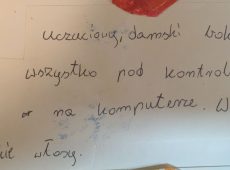 uczciwą, damski bok
wszystko pod kontrol
na komputerze. W
nie włosy.